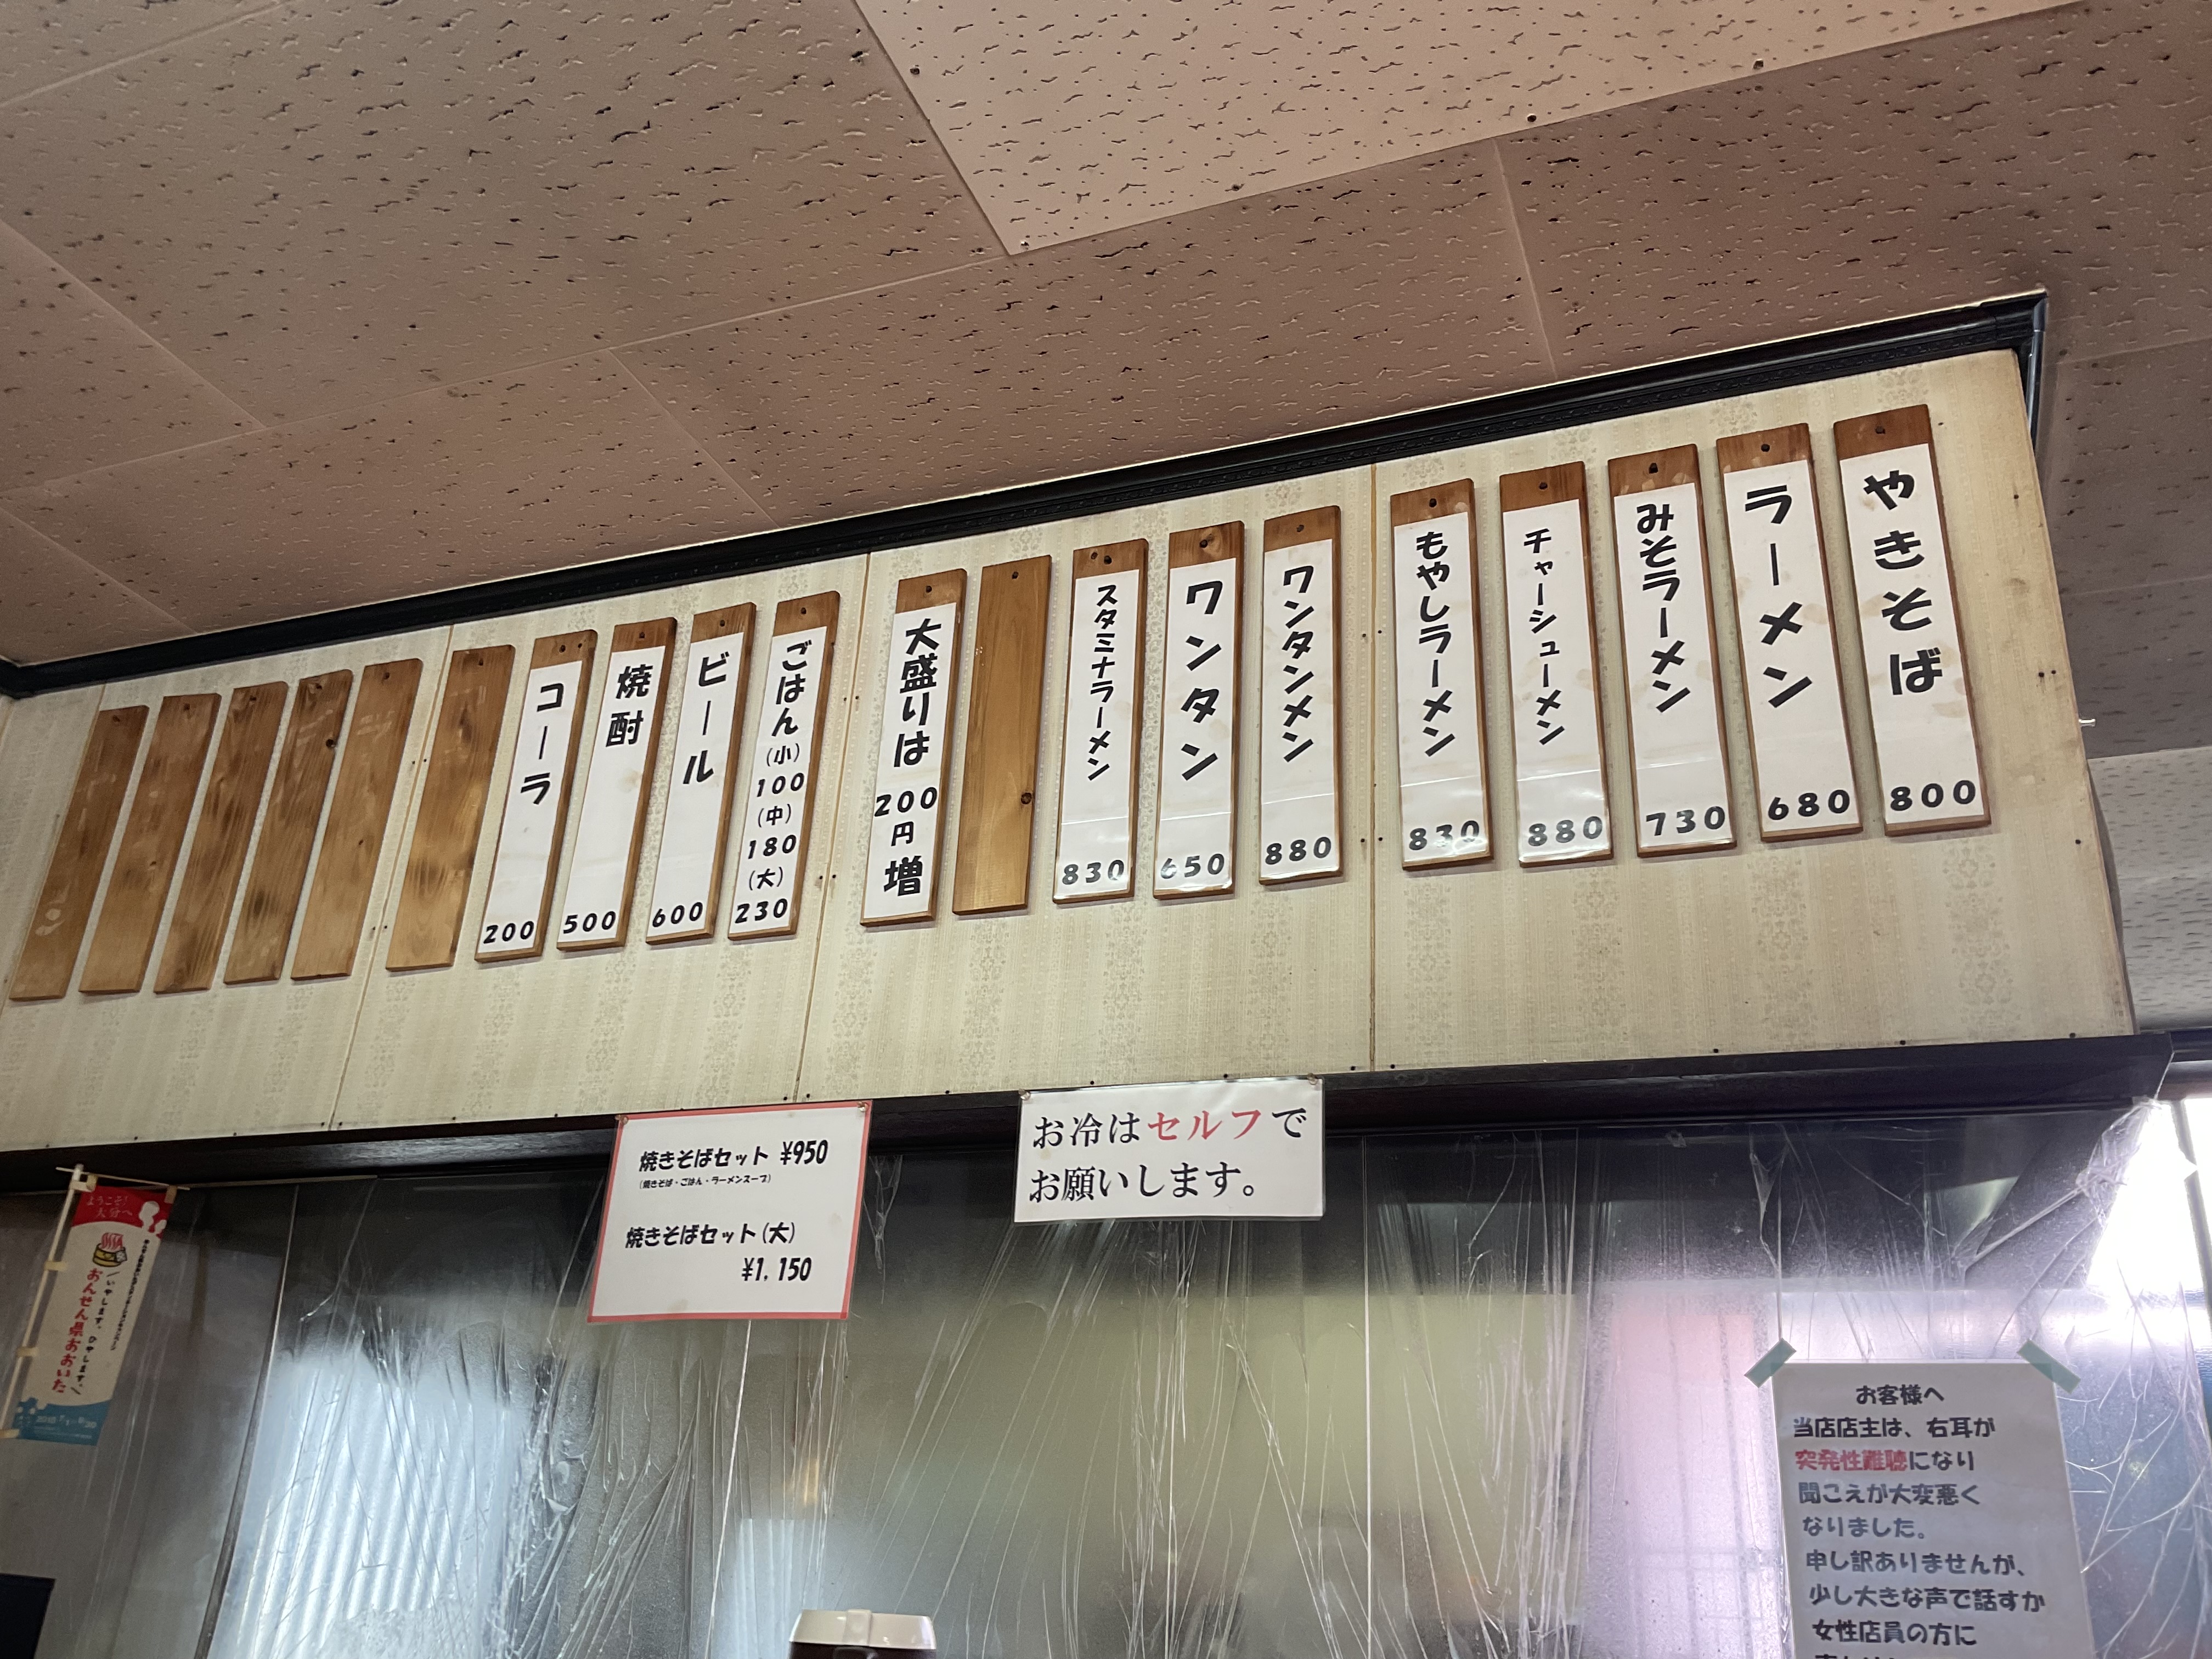 やきそば
800
ラーメン
680
みそラーメン
730
チャーシューメン
880
もやしラーメン
830
ワンタンメン
880
ワンタン
650
スタミナラーメン
830
大盛りは
200
円
増
ごはん
(小)
100
(中)
180
(大)
230
ビール
600
焼酎
500
コーラ
200
焼きそばセット ¥950
(焼きそば・ごはん・ラーメンスープ)
焼きそばセット(大)
¥1,150
お冷はセルフで
お願いします。
ようこそ!
大分へ
いやします。ひやします。
おんせん県おおいた
お客様へ
当店店主は、右耳が
突発性難聴になり
聞こえが大変悪く
なりました。
申し訳ありませんが、
少し大きな声で話すか
女性店員の方に